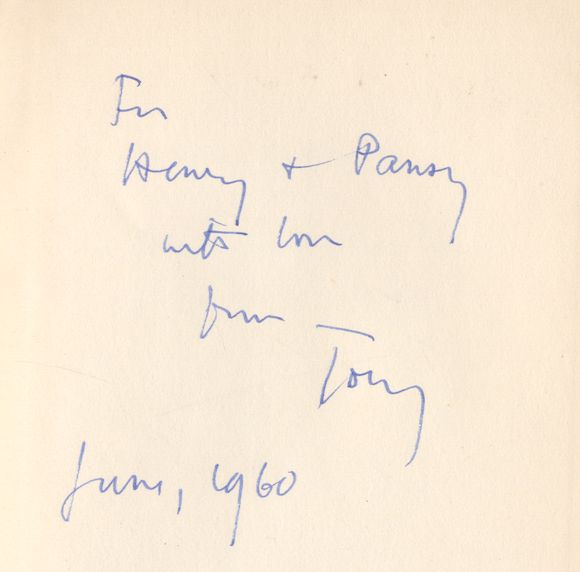 For
Henry + Pansy
with love
from
Tony
June, 1960